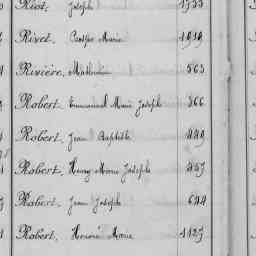 Riot, Joseph 1733
Rivet, Marie 1919
Rivière, Mathurin 563
Robert, Emmanuel Marie Joseph 366
Robert, Jean Baptiste 449
Robert, Henry Marie Joseph 457
Robert, Jean Joseph 644
Robert, Honoré Marie 1127